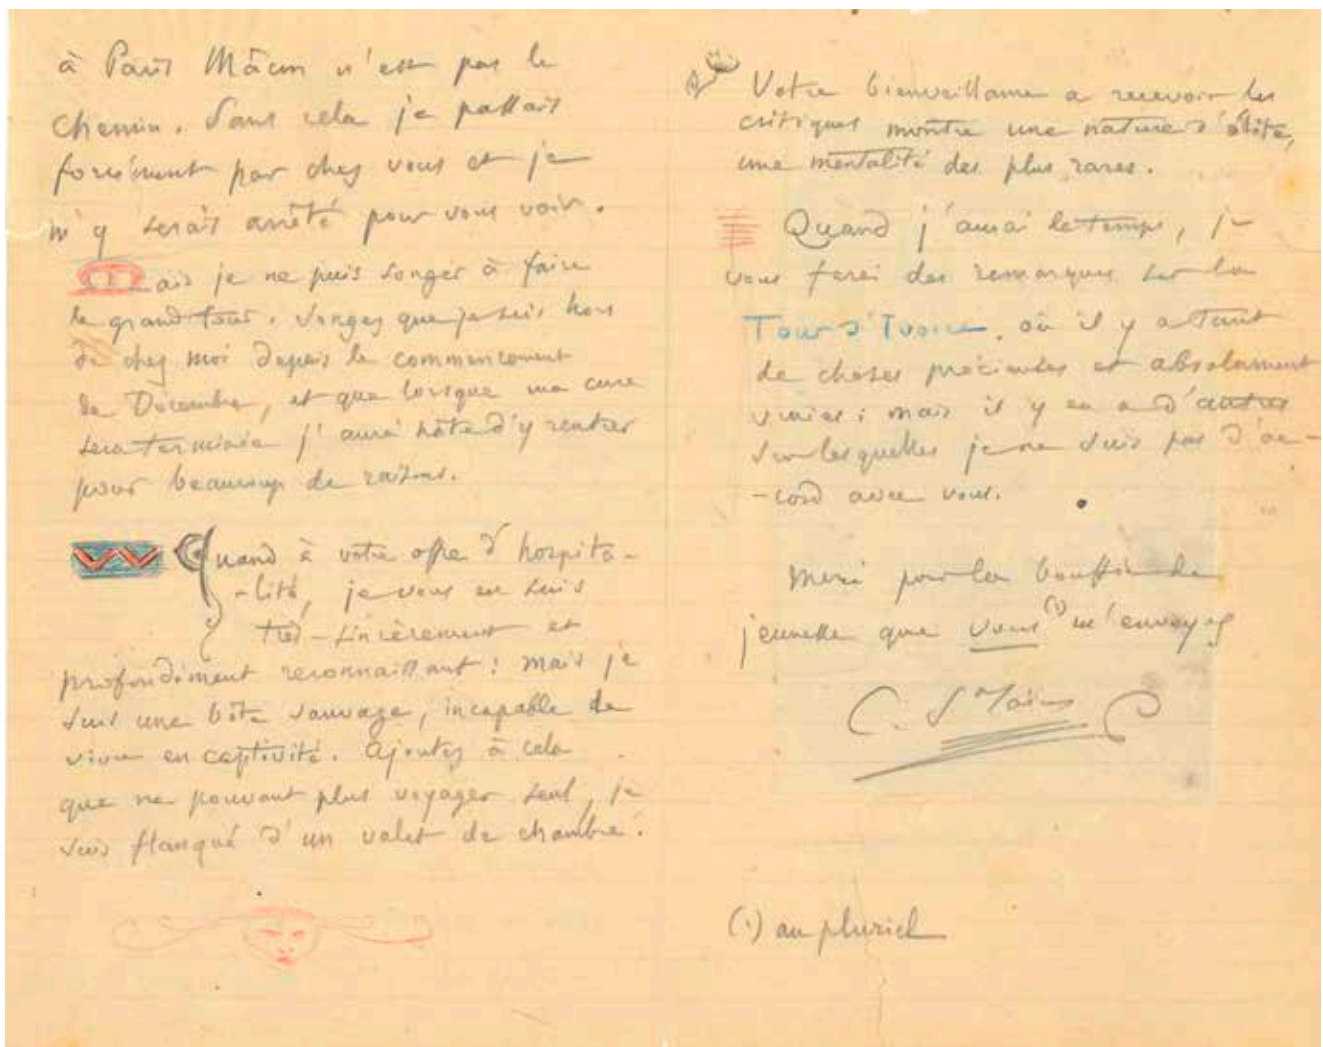 à Paris Mâcon n'est pas le
chemin. Sans cela je passais
forcément par chez vous et je
m'y serais arrêté pour vous voir.
Mais je ne puis songer à faire
le grand tour. Songez que je suis hors
de chez moi depuis le commencement
de Décembre, et que lorsque ma cure
sera terminée j'aurai hâte d'y rentrer
pour beaucoup de raisons.
Quand à votre offre d'hospita-
-lité, je vous en suis
très-sincèrement et
profondément reconnaissant : mais je
suis une bête sauvage, incapable de
vivre en captivité. Ajoutez à cela
que ne pouvant plus voyager seul, je
suis flanqué d'un valet de chambre.
Votre bienveillance a recevoir les
critiques montre une nature d'élite,
une mentalité des plus rares.
Quand j'aurai le temps, je
vous ferai des remarques sur la
Tour d'Ivoire, où il y a tant
de choses précieuses et absolument
vraies : mais il y en a d'autres
sur lesquelles je ne suis pas d'ac-
-cord avec vous.
Merci pour la bouffée de
jeunesse que vous (1) m'envoyez
C. St Saëns
(1) au pluriel